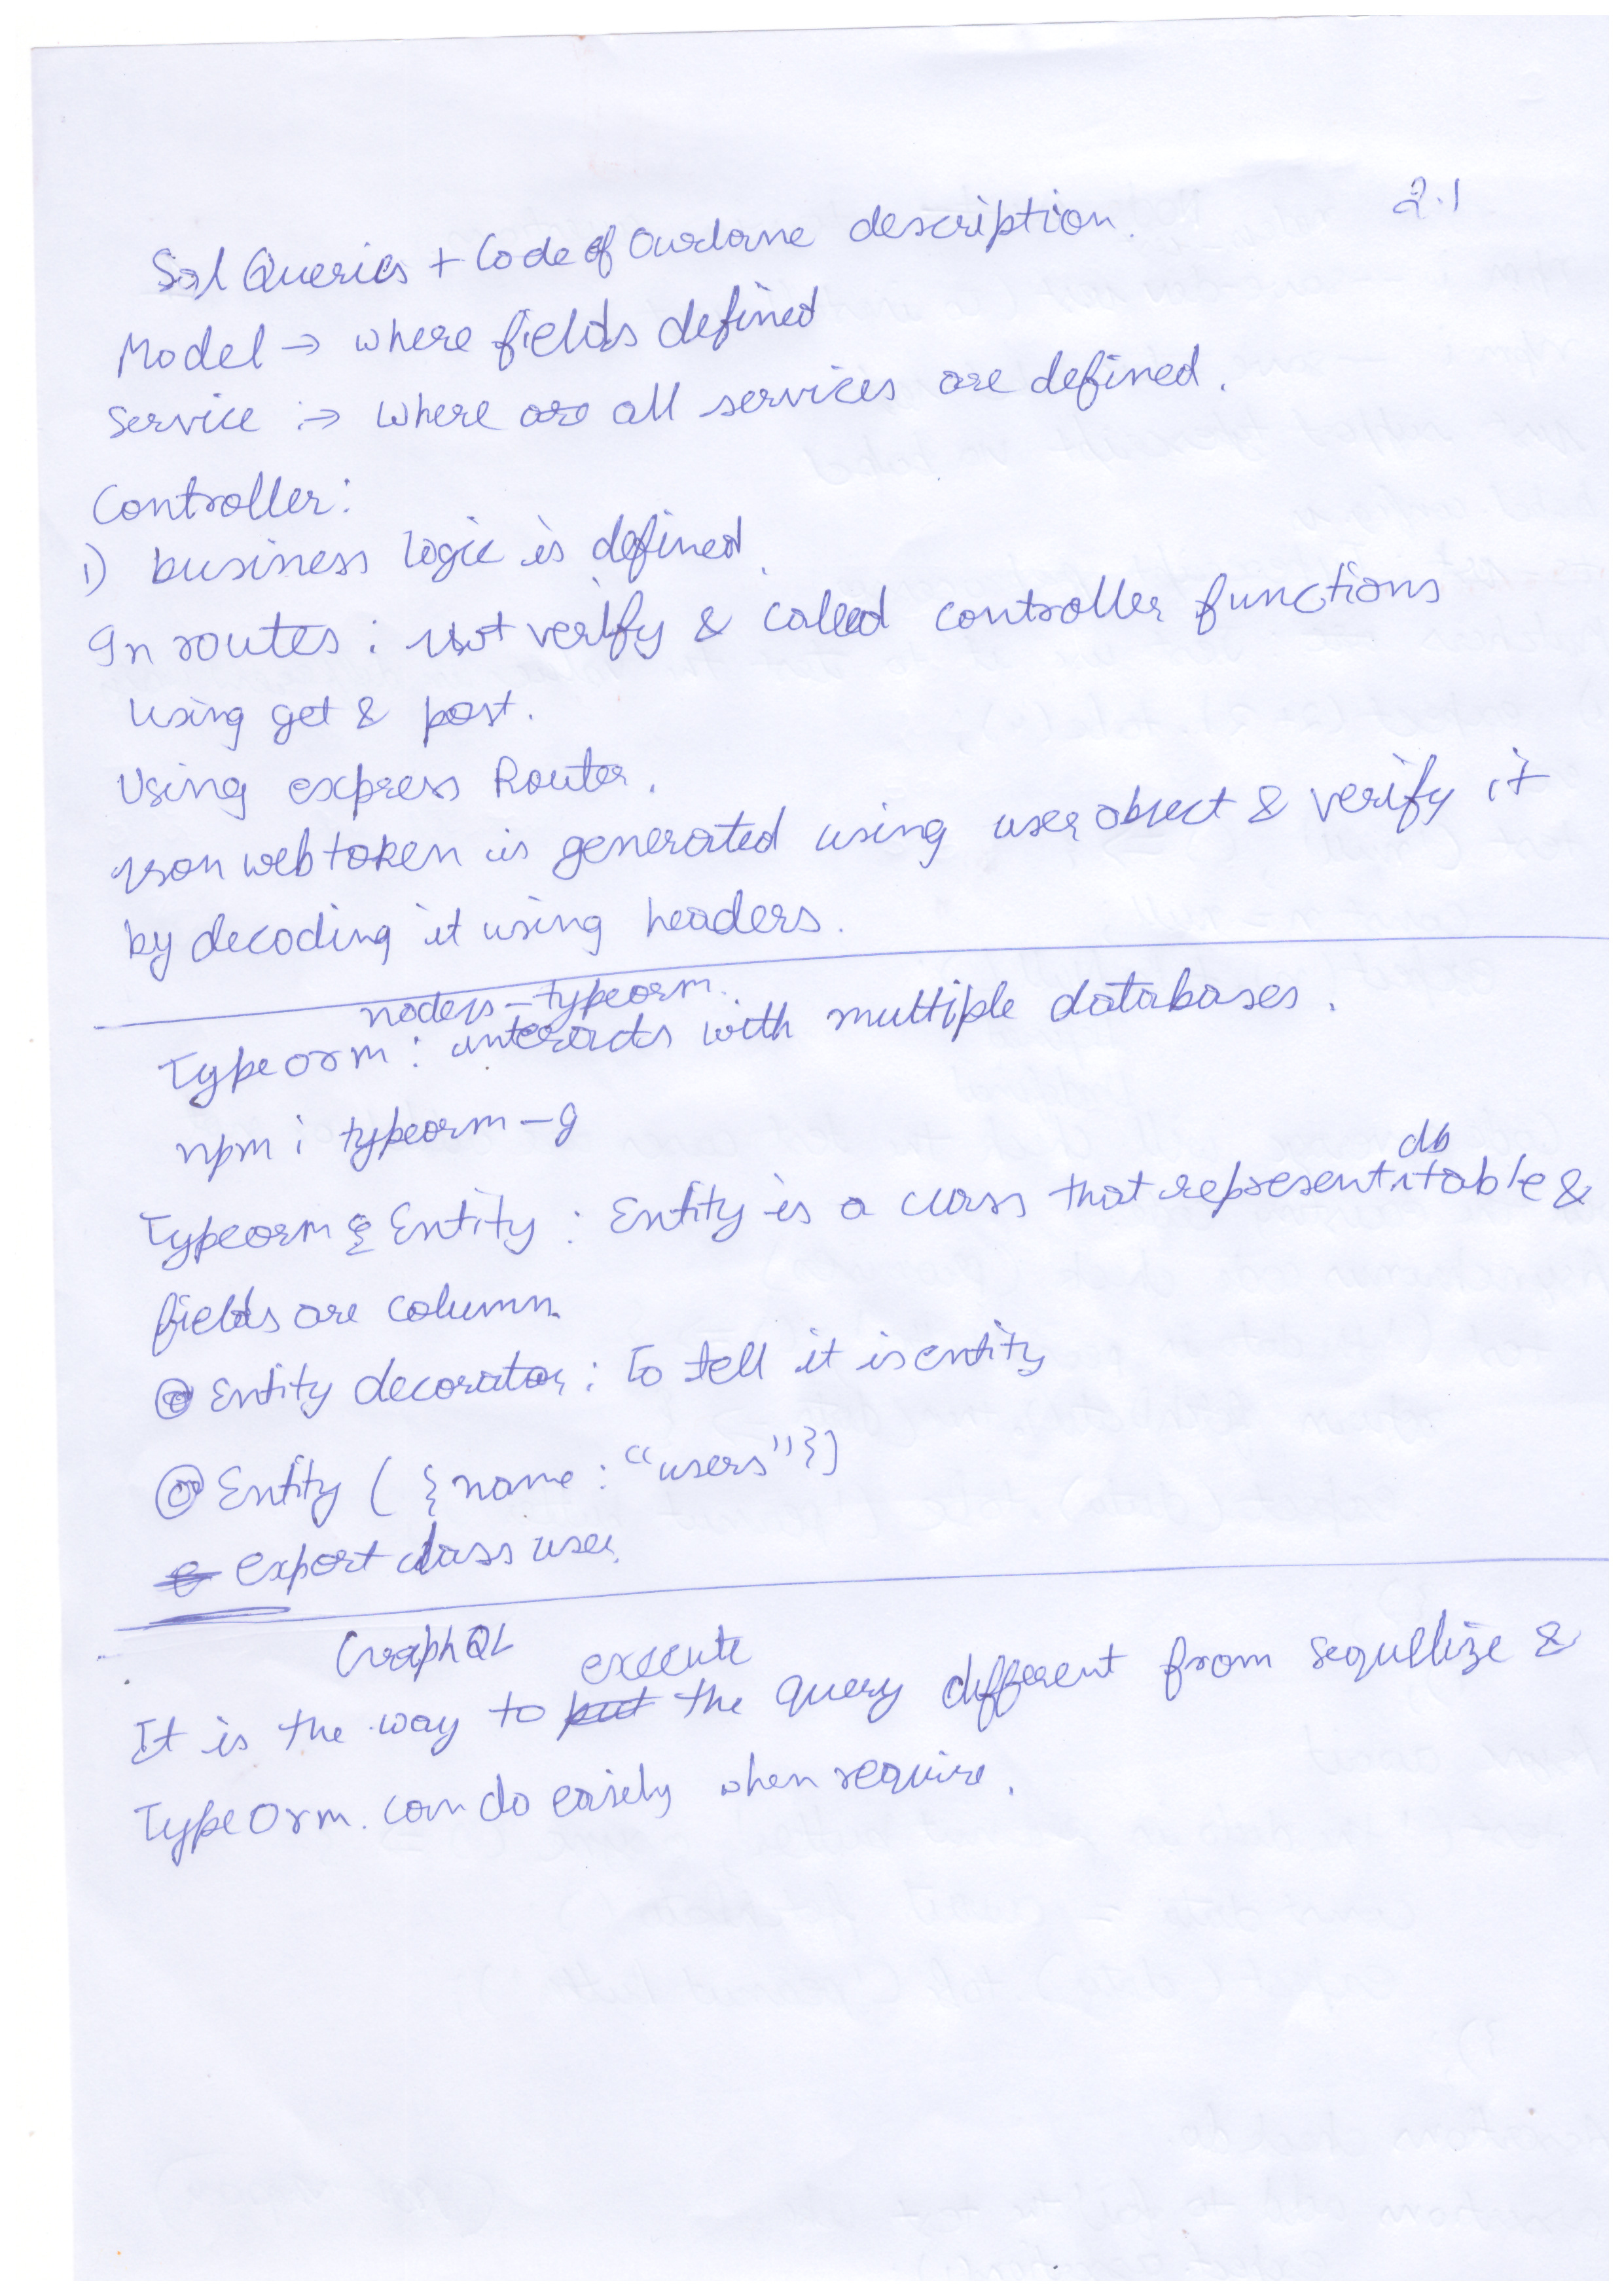 2.1
Sql Queries + Code of description.
Model → where fields defined
Service :→ where are all services are defined.
Controller:
1) business logic is defined.
In routes : verify & called controller functions
Using get & post.
Using express Router.
Json web token is generated using user object & verify it
by decoding it using headers.
nodejs-typeorm.
Typeorm : interacts with multiple databases.
npm i typeorm -g
db
Typeorm & Entity : Entity is a class that represent table &
fields are column.
@ Entity decorator : To tell it is entity
@ Entity ( { name : "users" })
export class user
GraphQL
execute
It is the way to the query different from sequllize &
TypeOrm. can do easily when require.